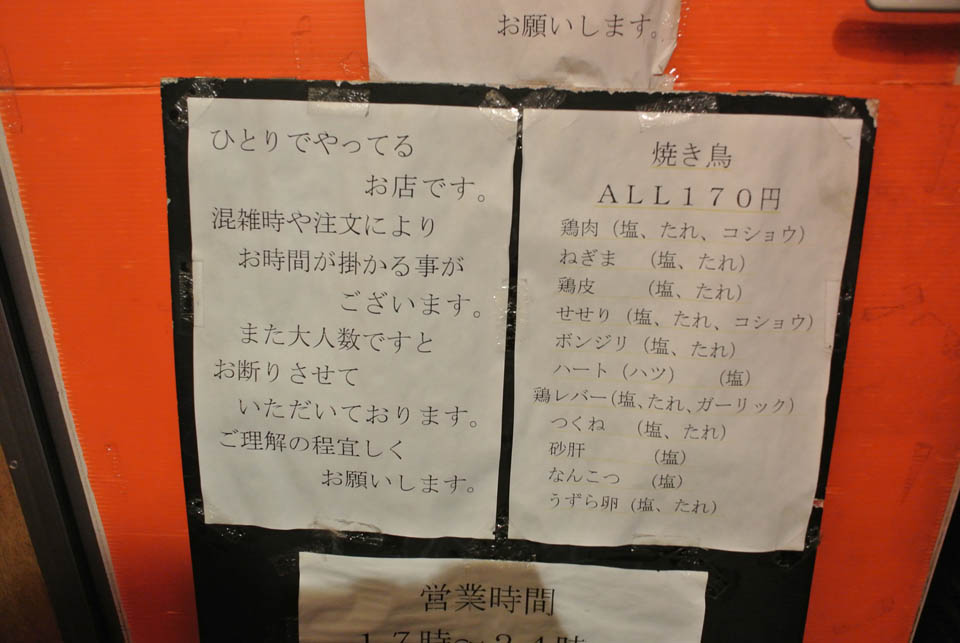 お願いします。
ひとりでやってる
お店です。
混雑時や注文により
お時間が掛かる事が
ございます。
また大人数ですと
お断りさせて
いただいております。
ご理解の程宜しく
お願いします。
焼き鳥
ALL170円
鶏肉(塩、たれ、コショウ)
ねぎま (塩、たれ)
鶏皮 (塩、たれ)
せせり(塩、たれ、コショウ)
ボンジリ(塩、たれ)
ハート(ハツ) (塩)
鶏レバー(塩、たれ、ガーリック)
つくね (塩、たれ)
砂肝 (塩)
なんこつ (塩)
うずら卵(塩、たれ)
営業時間
17時~24時